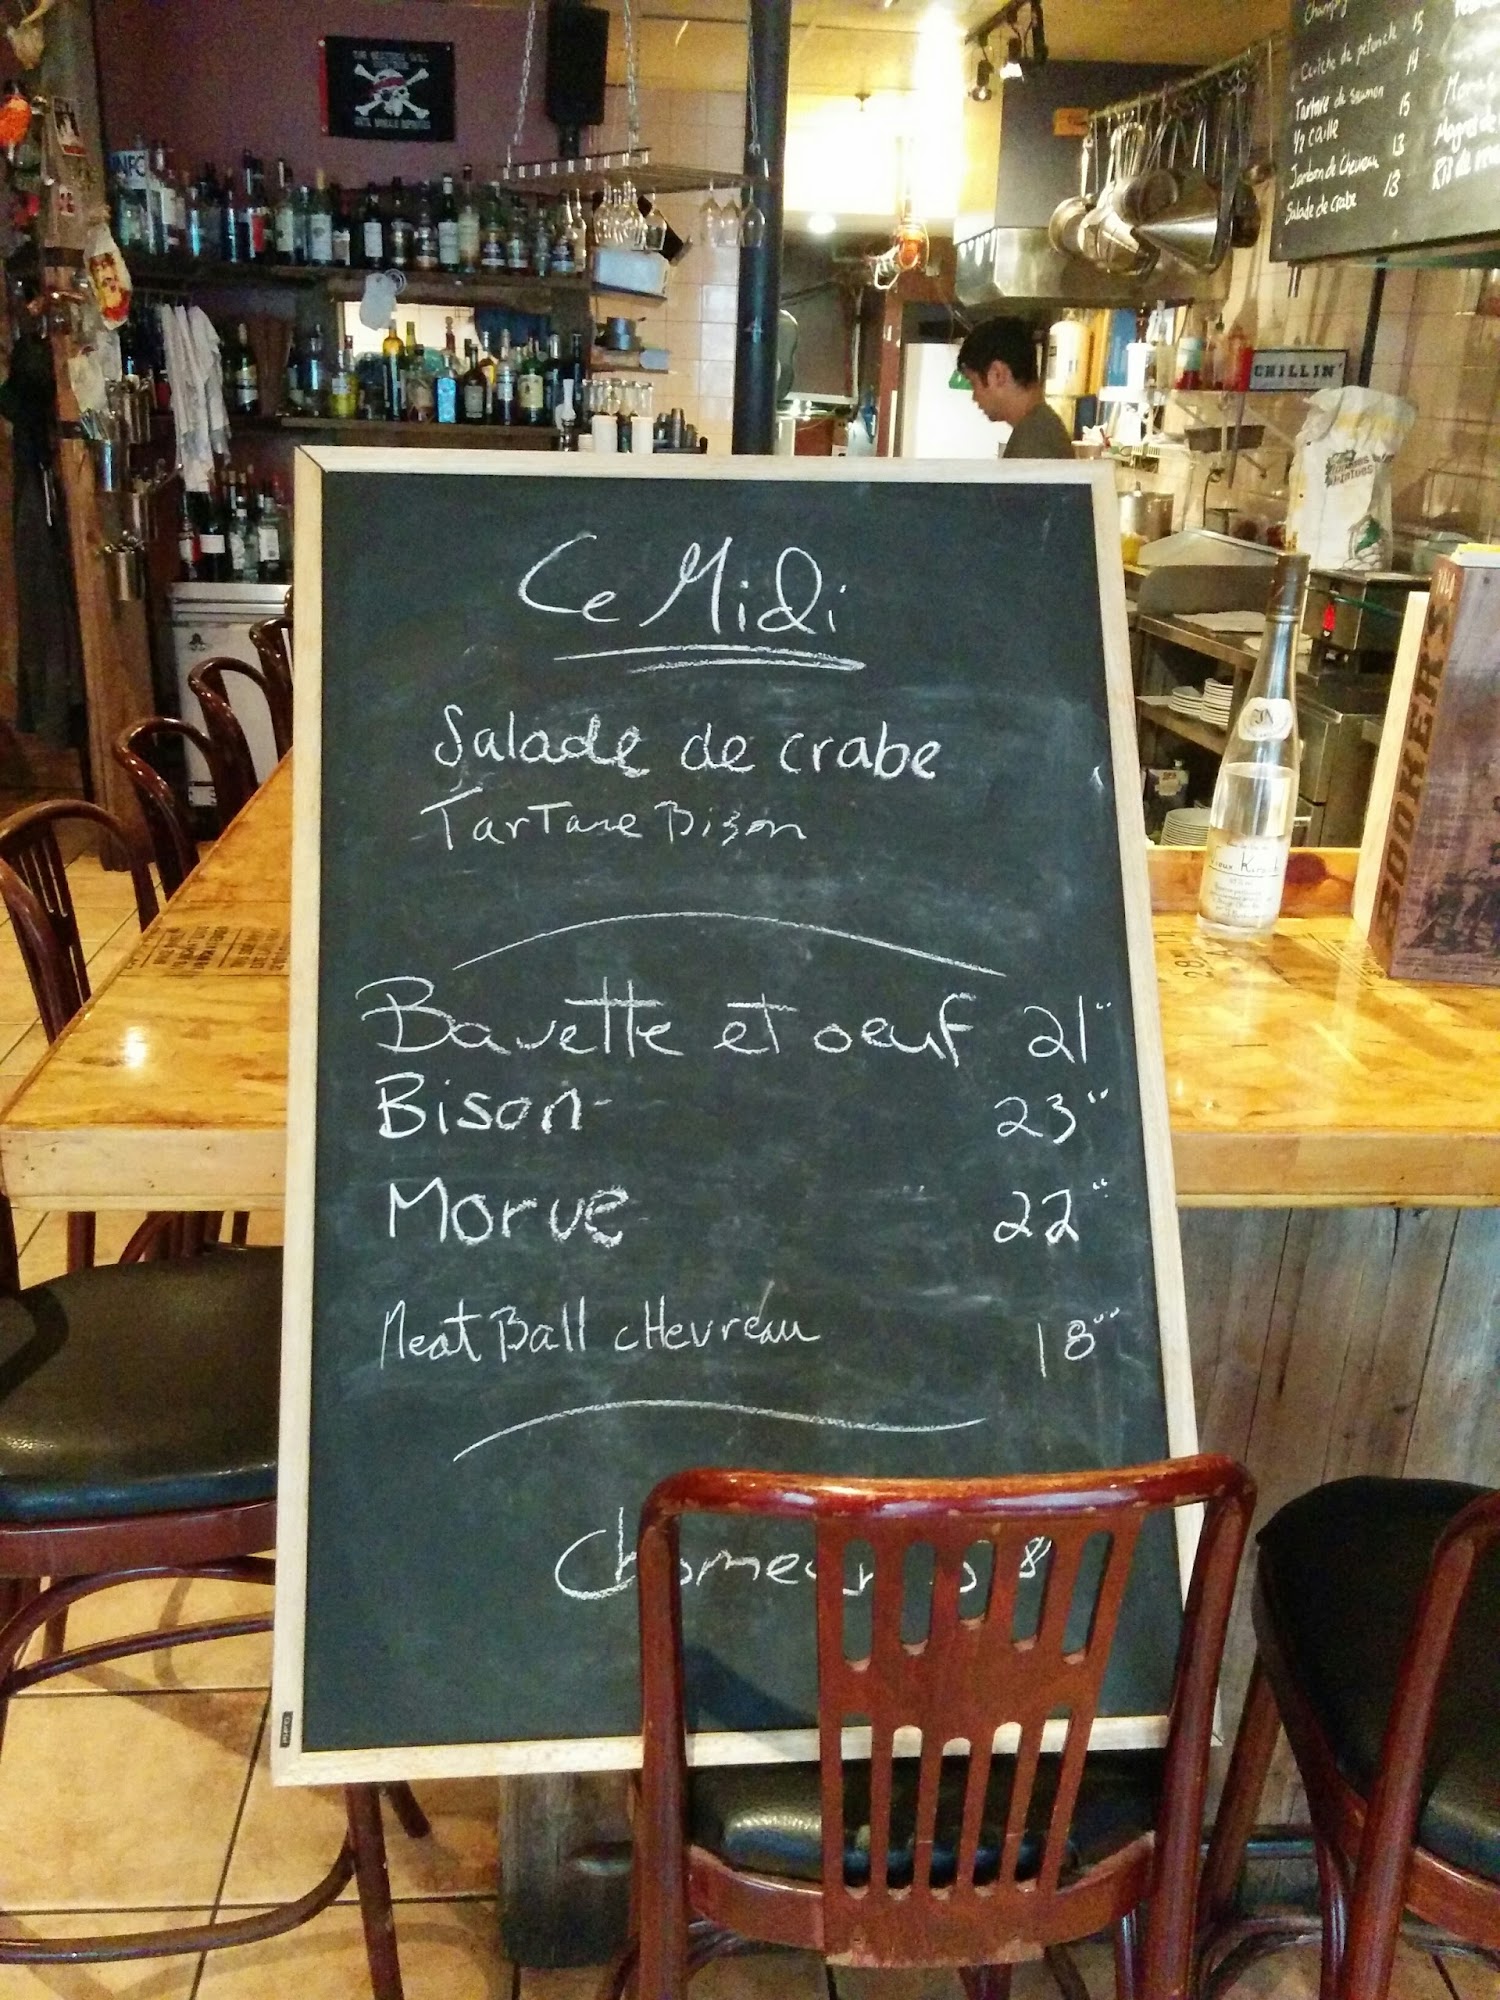 Champ
Ceviche de pétoncle 15
Tartare de saumon 14
1/2 caille 15
Jambon de Chevreau 13
Salade de crabe 13
Magret de
Ris de
CHILLIN'
BOOKER'S
Ce Midi
Salade de crabe
Tartare Bison
Bavette et oeuf 21"
Bison 23"
Morue 22"
Meat Ball cHevreau 18"
8